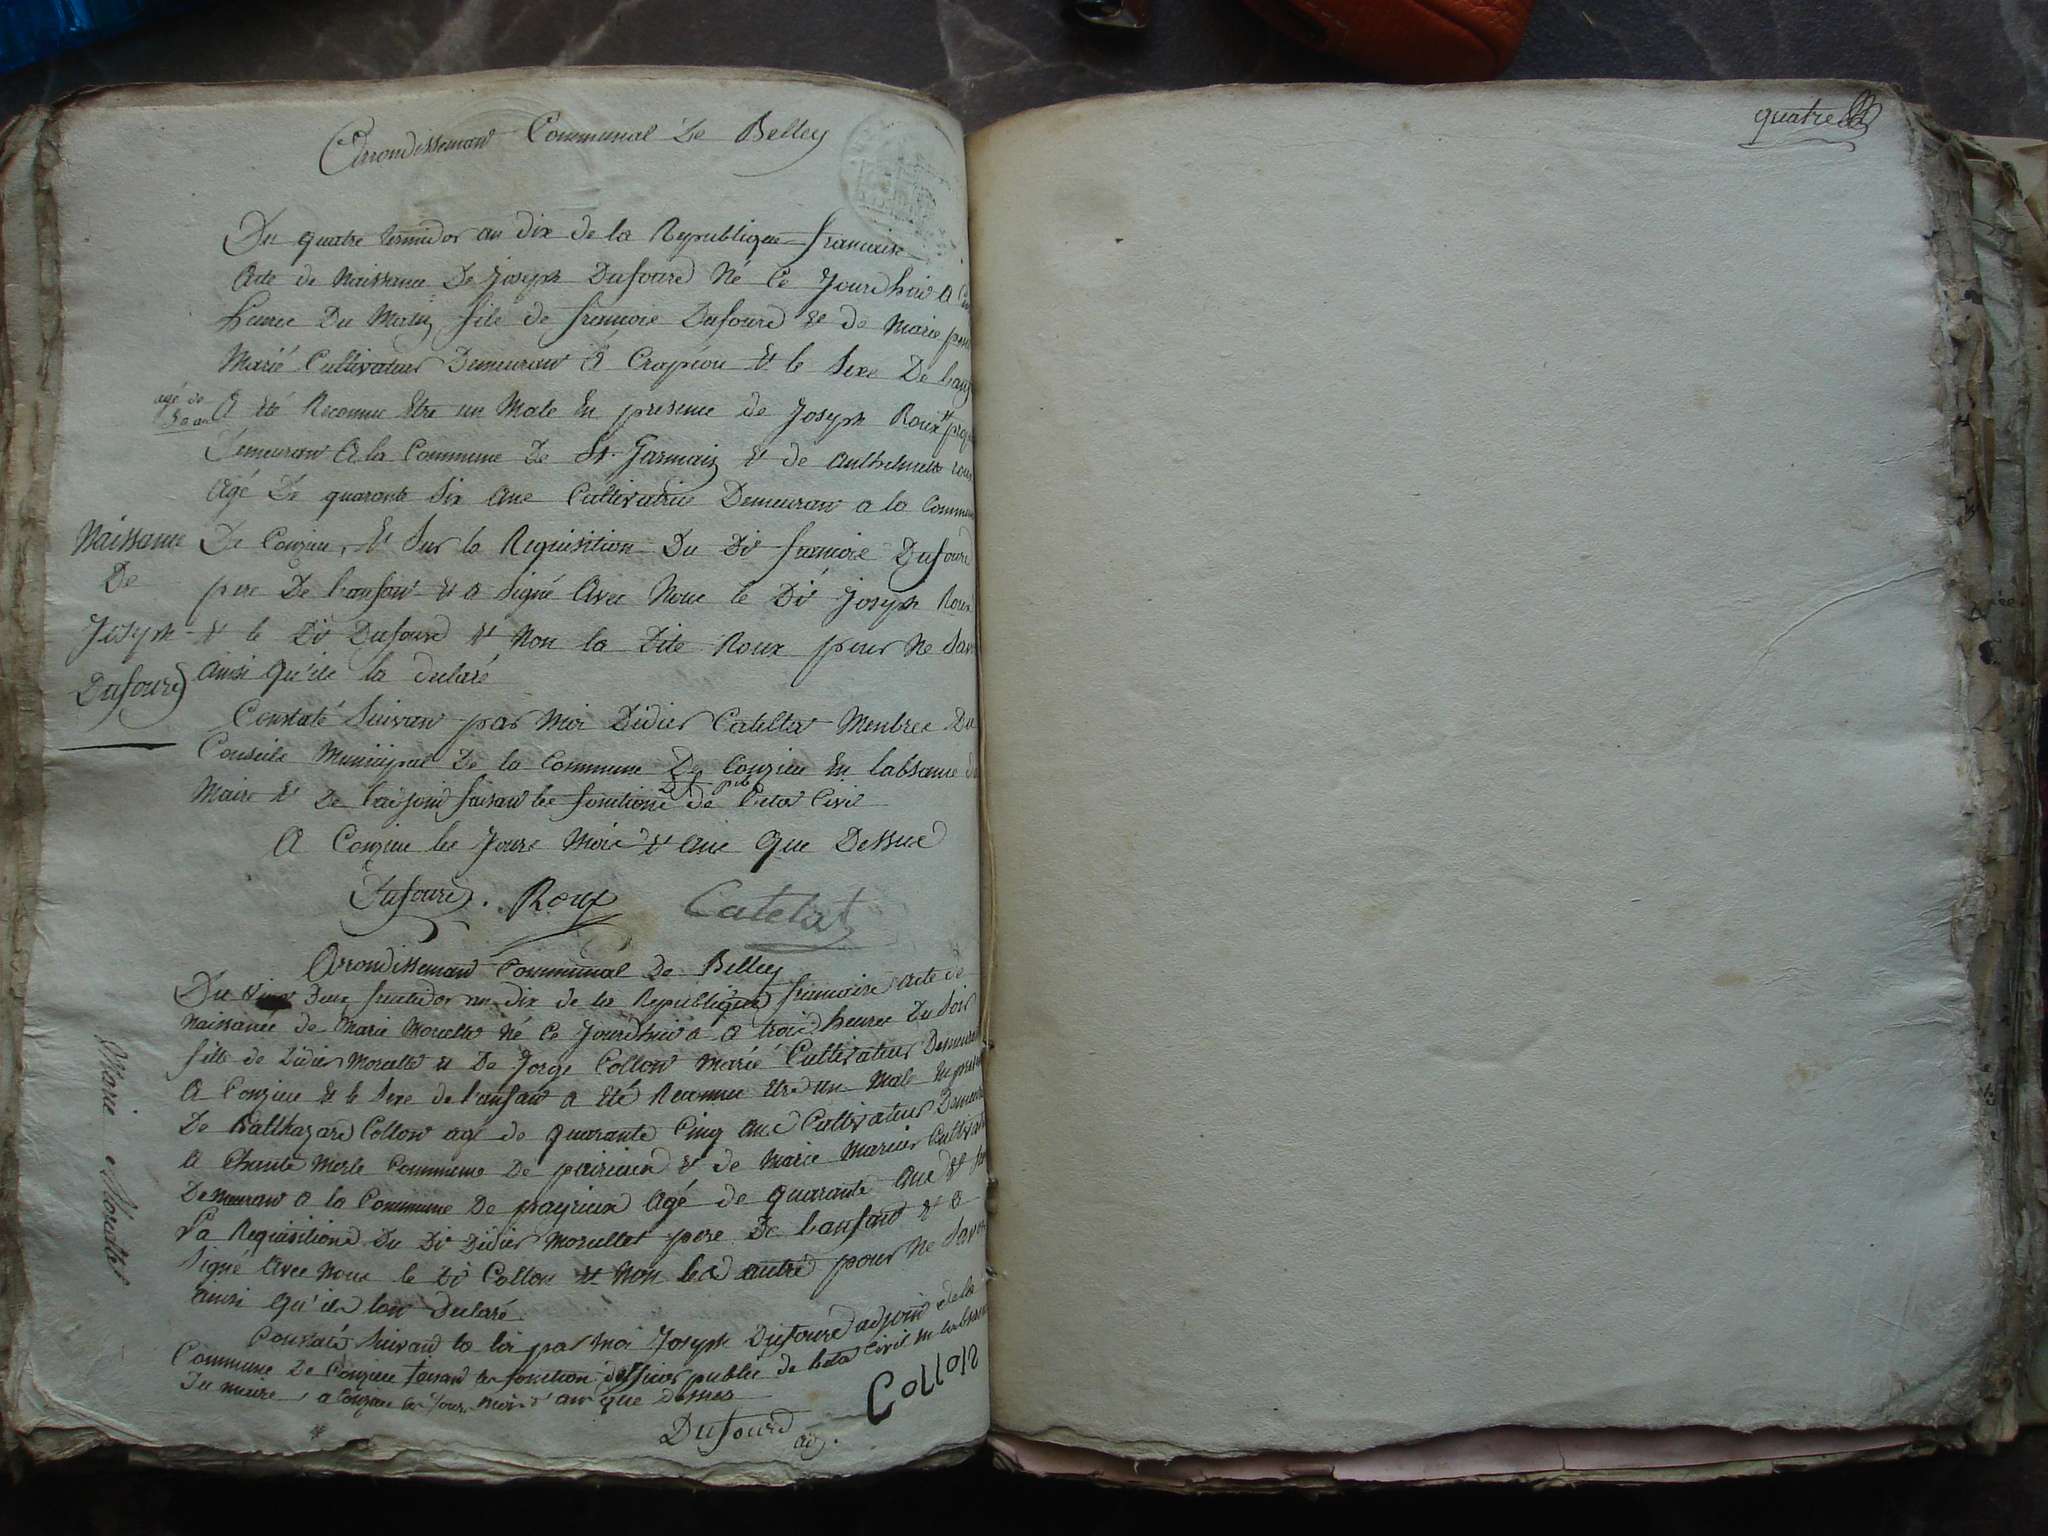 quatre
Arrondissemant Communal De Belley
Du quatre termidor an dix de la Republique francaise
Acte de Naissance De Joseph Dufourd Né Ce Jourdhui a
heures Du Matin fils de francois Dufourd et de Marie
Marié Cultivateur Demeurant A Crapéou et le sexe De
agé de
50 an
A été Reconnu Etre un Male En presence de Joseph Roux
Demeurant A la Commune De St. Garmain et de anthelmette
Agé De quarante six ans Cultivatrice Demeurant a la Commune
De Conzieu, et sur la Requisition Du Dit francois Dufourd
pere De lanfant et a signé Avec Nous le Dit Joseph Roux
et le Dit Dufourd et Non la Dite Roux pour Ne
ainsi qu'ils la declaré
Naissance
De
Joseph
Dufourd
Constaté Suivant par Moi Didier Catellat Menbres Du
Conseils Municipal De la Commune De Conzieu En labsance
Maire et De ladjoint faisant les fonctions de letat Civil
A Conzieu les Jours Mois et ans Que Dessus
Dufourd. Roux Catelat
Arrondissemand Communal De Belley
Du Deux fructidor an dix de la Republique francaise acte de
Naissance de Marie Morellet Né Ce Jourdhui a trois heures Du Soir
fille de Didier Morellet et De Jorge Collon Marié Cultivateur
A Conzieu et le Sexe de l'anfant a été Reconnu Etre un Male
De Balthazard Collon agé de quarante Cinq ans Cultivateur
A Chante Merle Commune De peirieux et de Marie
Demeurant a la Commune De peyrieux Agé de quarante ans et
La Requisitions Du Dit Didier Morellet pere De lanfant et a
Signé Avec Nous le Dit Collon et Non les autres pour Ne
ainsi qu'ils lont declaré
Marie Morellet
Constaté Suivant la loi par Moi Joseph Dufourd adjoint de la
Commune De Conzieu faisant les fonction publié de letat Civil en
Du maire, a Conzieu les Jours, mois et an que Dessus
Collon
Dufourd adj.